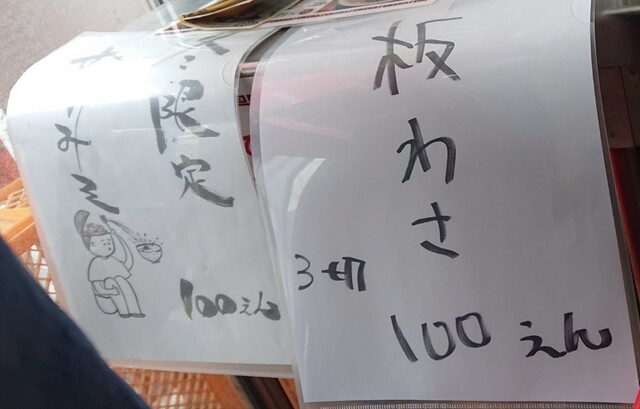 板わさ
3切
100えん
限定
みそ
100えん